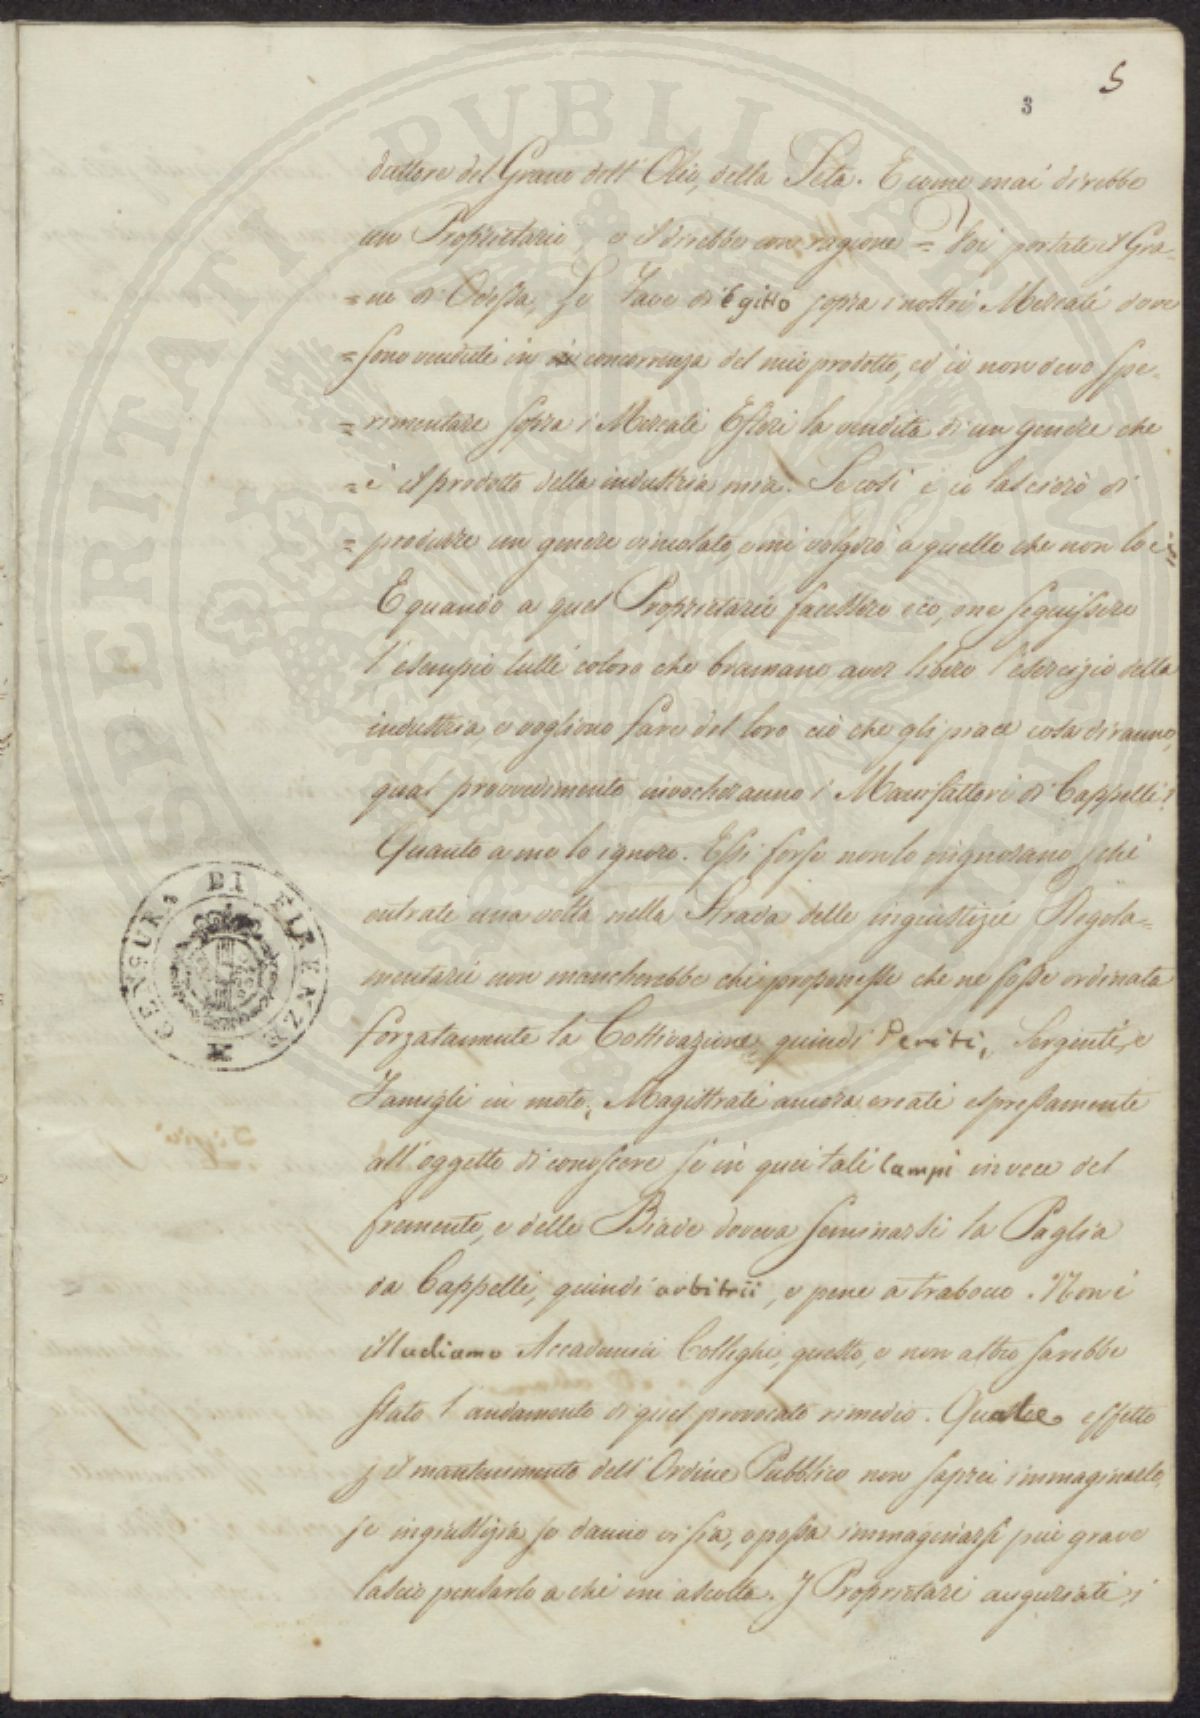 5
3
duttore del Grano dell'Olio, della Seta. E come mai direbbe
un Proprietario, e il direbbe con ragione = Voi portate il Gra-
= no di Odessa, Le Fave di Egitto sopra i nostri Mercati dove
= sono vendute in concorrenza del mio prodotto, ed io non devo spe-
= rimentare sopra i Mercati Esteri la vendita di un genere che
= è il prodotto della industria mia. Se così è io lascierò di
= produrre un genere vincolato, e mi volgerò a quello che non lo è
E quando a quel Proprietario facessero eco, one seguissero
l'esempio tutti coloro che bramano aver libero l'esercizio della
industria, e vogliono fare del loro ciò che gli piace cosa diranno,
qual provvedimento invocheranno i Manifattori di Cappelli?
Quanto a me lo ignoro. Essi forse non lo ingnorano, chè
entrati una volta nella Strada delle ingiustizie Regola=
mentarie non mancherebbe chi proponesse che ne fosse ordinata
forzatamente la Coltivazione, quindi Periti, Sergenti, e
Famigli in moto, Magistrati ancora creati espressamente
all'oggetto di conoscere se in quei tali Campi invece del
frumento, e delle Biade doveva seminarsi la Paglia
da Cappelli, quindi arbitrii, e pene a trabocco. Non c'
illudiamo Accademici Colleghi, questo, e non altro sarebbe
stato l'andamento di quel provocato rimedio. Quale effetto
p il mantenimento dell'Ordine Pubblico non saprei immaginarlo,
se ingiustizia se danno vi sia, o possa immaginarsi più grave
lascio pensarlo a chi mi ascolta. I Proprietari angariati, i
CENSURA DI FIRENZE
PROSPERITATI PUBLICAE AUGENDAE